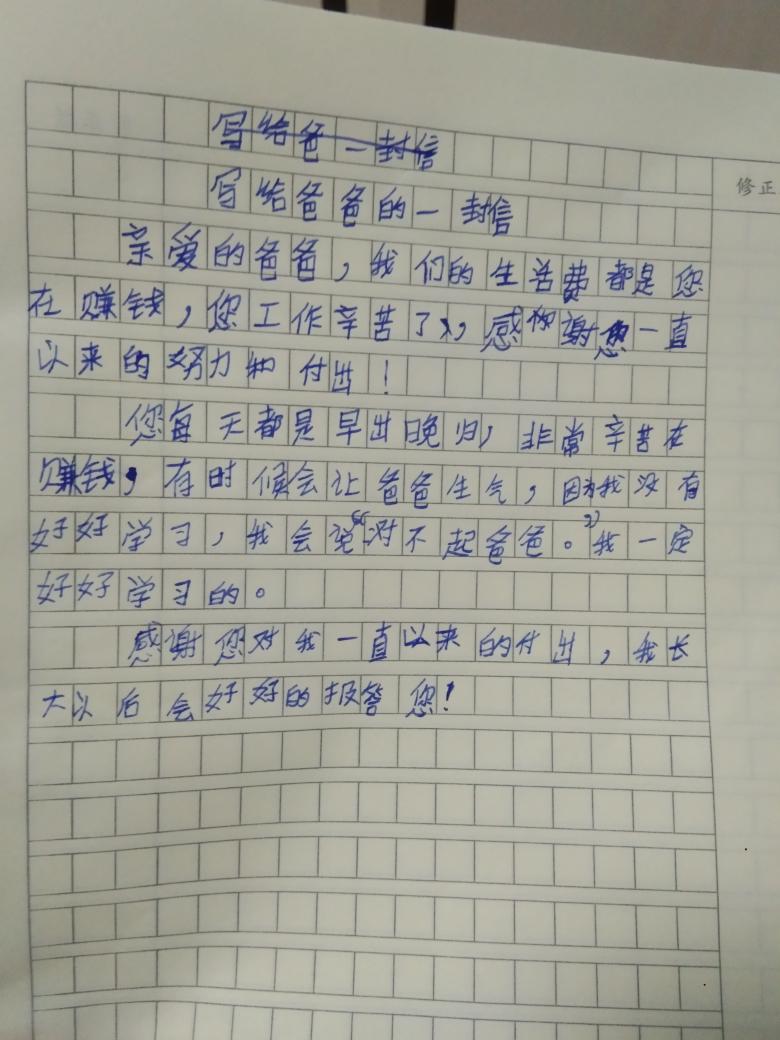 写给爸一封信
写给爸爸的一封信
修正
亲爱的爸爸，我们的生活费都是您
在赚钱，您工作辛苦了，感谢您一直
以来的努力和付出！
您每天都是早出晚归，非常辛苦在
赚钱，有时候会让爸爸生气，因为我没有
好好学习，我会说“对不起爸爸。”我一定
好好学习的。
感谢您对我一直以来的付出，我长
大以后会好好的报答您！